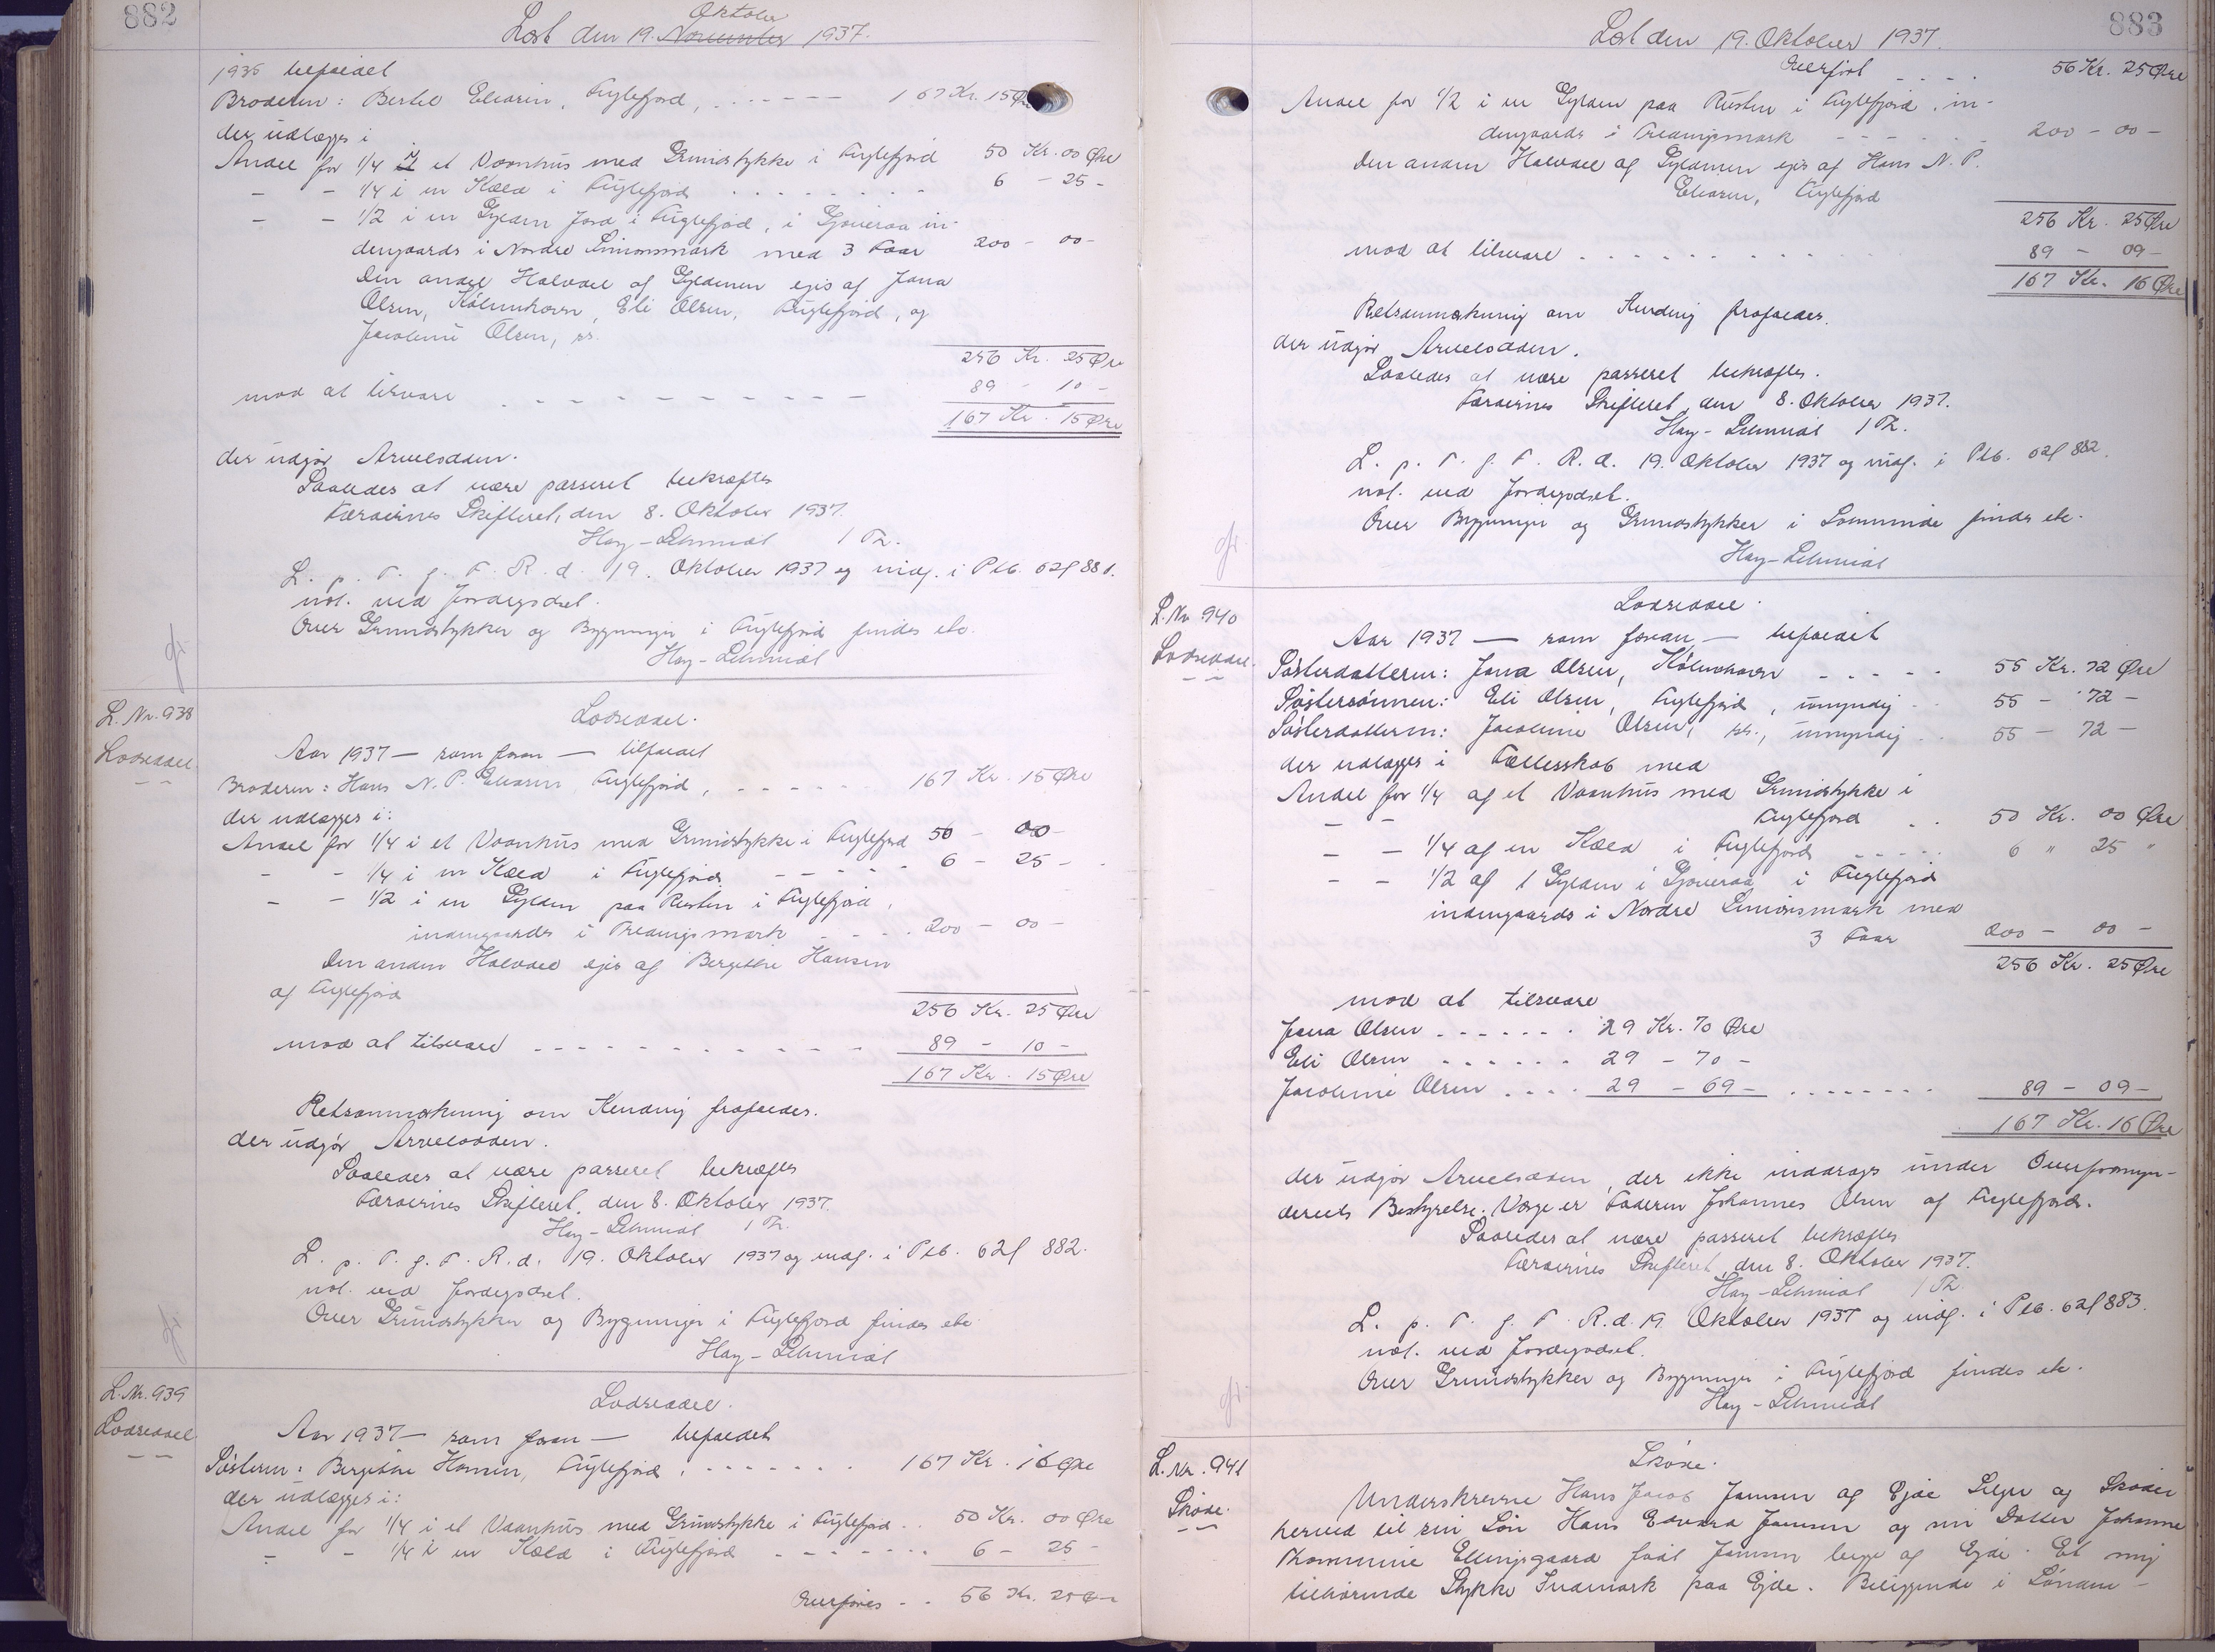 882
Læst den 19. Oktober November 1937.
1935 tilfaldet
Broderen: Bertel Eliasen, Fuglefjord, - - - - - - 167 Kr. 15 Øre
der udlægges i
Andel for 1/4 af et Vaanhus med Grundstykke i Fuglefjord 50 Kr. 00 Øre
- - 1/4 i en Kæld i Fuglefjord . . . . . . . 6 - 25 -
- - 1/2 i en Gylden Jord i Fuglefjord, i Gjoveraa in-
dengaards i Nordre Simonsmark med 3 Faar 200 - 00 -
Den anden Halvdel af Gyldenen ejes af Jana
Olsen, København, Eli Olsen, Fuglefjord, og
Jacobine Olsen, sst.
256 Kr. 25 Øre
mod at tilsvare - - - - - - - - - - 89 - 10 -
167 Kr. 15 Øre
der udgør Arvelodden.
Saaledes at være passeret bekræftes
Færøernes Skifteret, den 8. Oktober 1937.
Hay-Schmidt / Th.
L. p. F. g. T. R. d. 19. Oktober 1937 og indf. i Ptb. 62 f 881.
not. ved Jordegodset.
Over Grundstykker og Bygninger i Fuglefjord findes etc.
Hay-Schmidt
L. Nr. 938
Lodseddel
Lodseddel.
Aar 1937 — som foran — tilfaldet
Broderen: Hans N. P. Eliasen, Fuglefjord, - - - - - - 167 Kr. 15 Øre
der udlægges i:
Andel for 1/4 i et Vaanhus med Grundstykke i Fuglefjord 50 - 00 -
- - 1/4 i en Kæld i Fuglefjord - - - - - 6 - 25 -
- - 1/2 i en Gylden paa Rusten i Fuglefjord,
indengaards i Tredingsmark - - - . 200 - 00 -
Den anden Halvdel ejes af Bergithe Hansen
af Fuglefjord
256 Kr. 25 Øre
mod at tilsvare - - - - - - - - - - 89 - 10 -
167 Kr. 15 Øre
Retsanmærkning om Kending frafaldes.
der udgør Arvelodden.
Saaledes at være passeret bekræftes
Færøernes Skifteret, den 8. Oktober 1937.
Hay-Schmidt / Th.
L. p. F. g. T. R. d. 19. Oktober 1937 og indf. i Ptb. 62 f 882.
not. ved Jordegodset.
Over Grundstykker og Bygninger i Fuglefjord findes etc.
Hay-Schmidt
L. Nr. 939
Lodseddel
Lodseddel.
Aar 1937 — som foran — tilfaldet
Søsteren: Bergithe Hansen, Fuglefjord, - - - - - - - 167 Kr. 16 Øre
der udlægges i:
Andel for 1/4 i et Vaanhus med Grundstykke i Fuglefjord . . 50 Kr. 00 Øre
- - 1/4 i en Kæld i Fuglefjord - - - - - . . . 6 - 25 -
Overføres - - 56 Kr. 25 Ø-
883
Læst den 19. Oktober 1937.
Overført - - - - 56 Kr. 25 Øre
Andel for 1/2 i en Gylden paa Rusten i Fuglefjord, in-
dengaards i Tredingsmark - - - - - - 200 - 00 -
Den anden Halvdel af Gyldenen ejes af Hans N. P.
Eliasen, Fuglefjord
256 Kr. 25 Øre
mod at tilsvare . . . . . . . . . . . 89 - 09 -
167 Kr. 16 Øre
Retsanmærkning om Kending frafaldes.
der udgør Arvelodden.
Saaledes at være passeret bekræftes.
Færøernes Skifteret, den 8. Oktober 1937.
Hay-Schmidt / Th.
L. p. F. g. T. R. d. 19. Oktober 1937 og indf. i Ptb. 62 f 882.
not. ved Jordegodset.
Over Bygninger og Grundstykker i findes etc.
Hay-Schmidt
L. Nr. 940
Lodseddel.
Lodseddel.
Aar 1937 — som foran — tilfaldet
Søsterdatteren: Jana Olsen, København - - - - - 55 Kr. 72 Øre
Søstersønnen: Eli Olsen, Fuglefjord, umyndig - - 55 - 72 -
Søsterdatteren: Jacobine Olsen, sst., umyndig . . 55 - 72 -
der udlægges i Fællesskab med
Andel for 1/4 af et Vaanhus med Grundstykke i
Fuglefjord . . 50 Kr. 00 Øre
- - 1/4 af en Kæld i Fuglefjord - - - - - 6 " 25 "
- - 1/2 af 1 Gylden i Gjoveraa, i Fuglefjord
indengaards i Nordre Simonsmark med
3 Faar 200 - 00 -
256 Kr. 25 Øre
mod at tilsvare
Jana Olsen - - - - - - . 29 Kr. 70 Øre
Eli Olsen - - - - - - 29 - 70 -
Jacobine Olsen . . . . 29 - 69 - . - - - - - - - 89 - 09 -
167 Kr. 16 Øre
der udgør Arvelodden, der ikke inddrages under Overformyn-
deriets Bestyrelse. Værge er Faderen Johannes Olsen af Fuglefjord.
Saaledes at være passeret bekræftes
Færøernes Skifteret, den 8. Oktober 1937.
Hay-Schmidt / Th.
L. p. F. g. T. R. d. 19. Oktober 1937 og indf. i Ptb. 62 f 883.
not. ved Jordegodset.
Over Grundstykker og Bygninger i Fuglefjord findes etc.
Hay-Schmidt
L. Nr. 941
Skøde.
Skøde.
Underskrevne Hans Jacob Jensen af Ejde Sælger og Skøder
herved til sin Søn Hans Edvard Jensen og sin Datter Johanne
Thommine Ellingsgaard født Jensen begge af Ejde. Et mig
tilhørende Stykke Indmark paa Ejde. Beliggende i